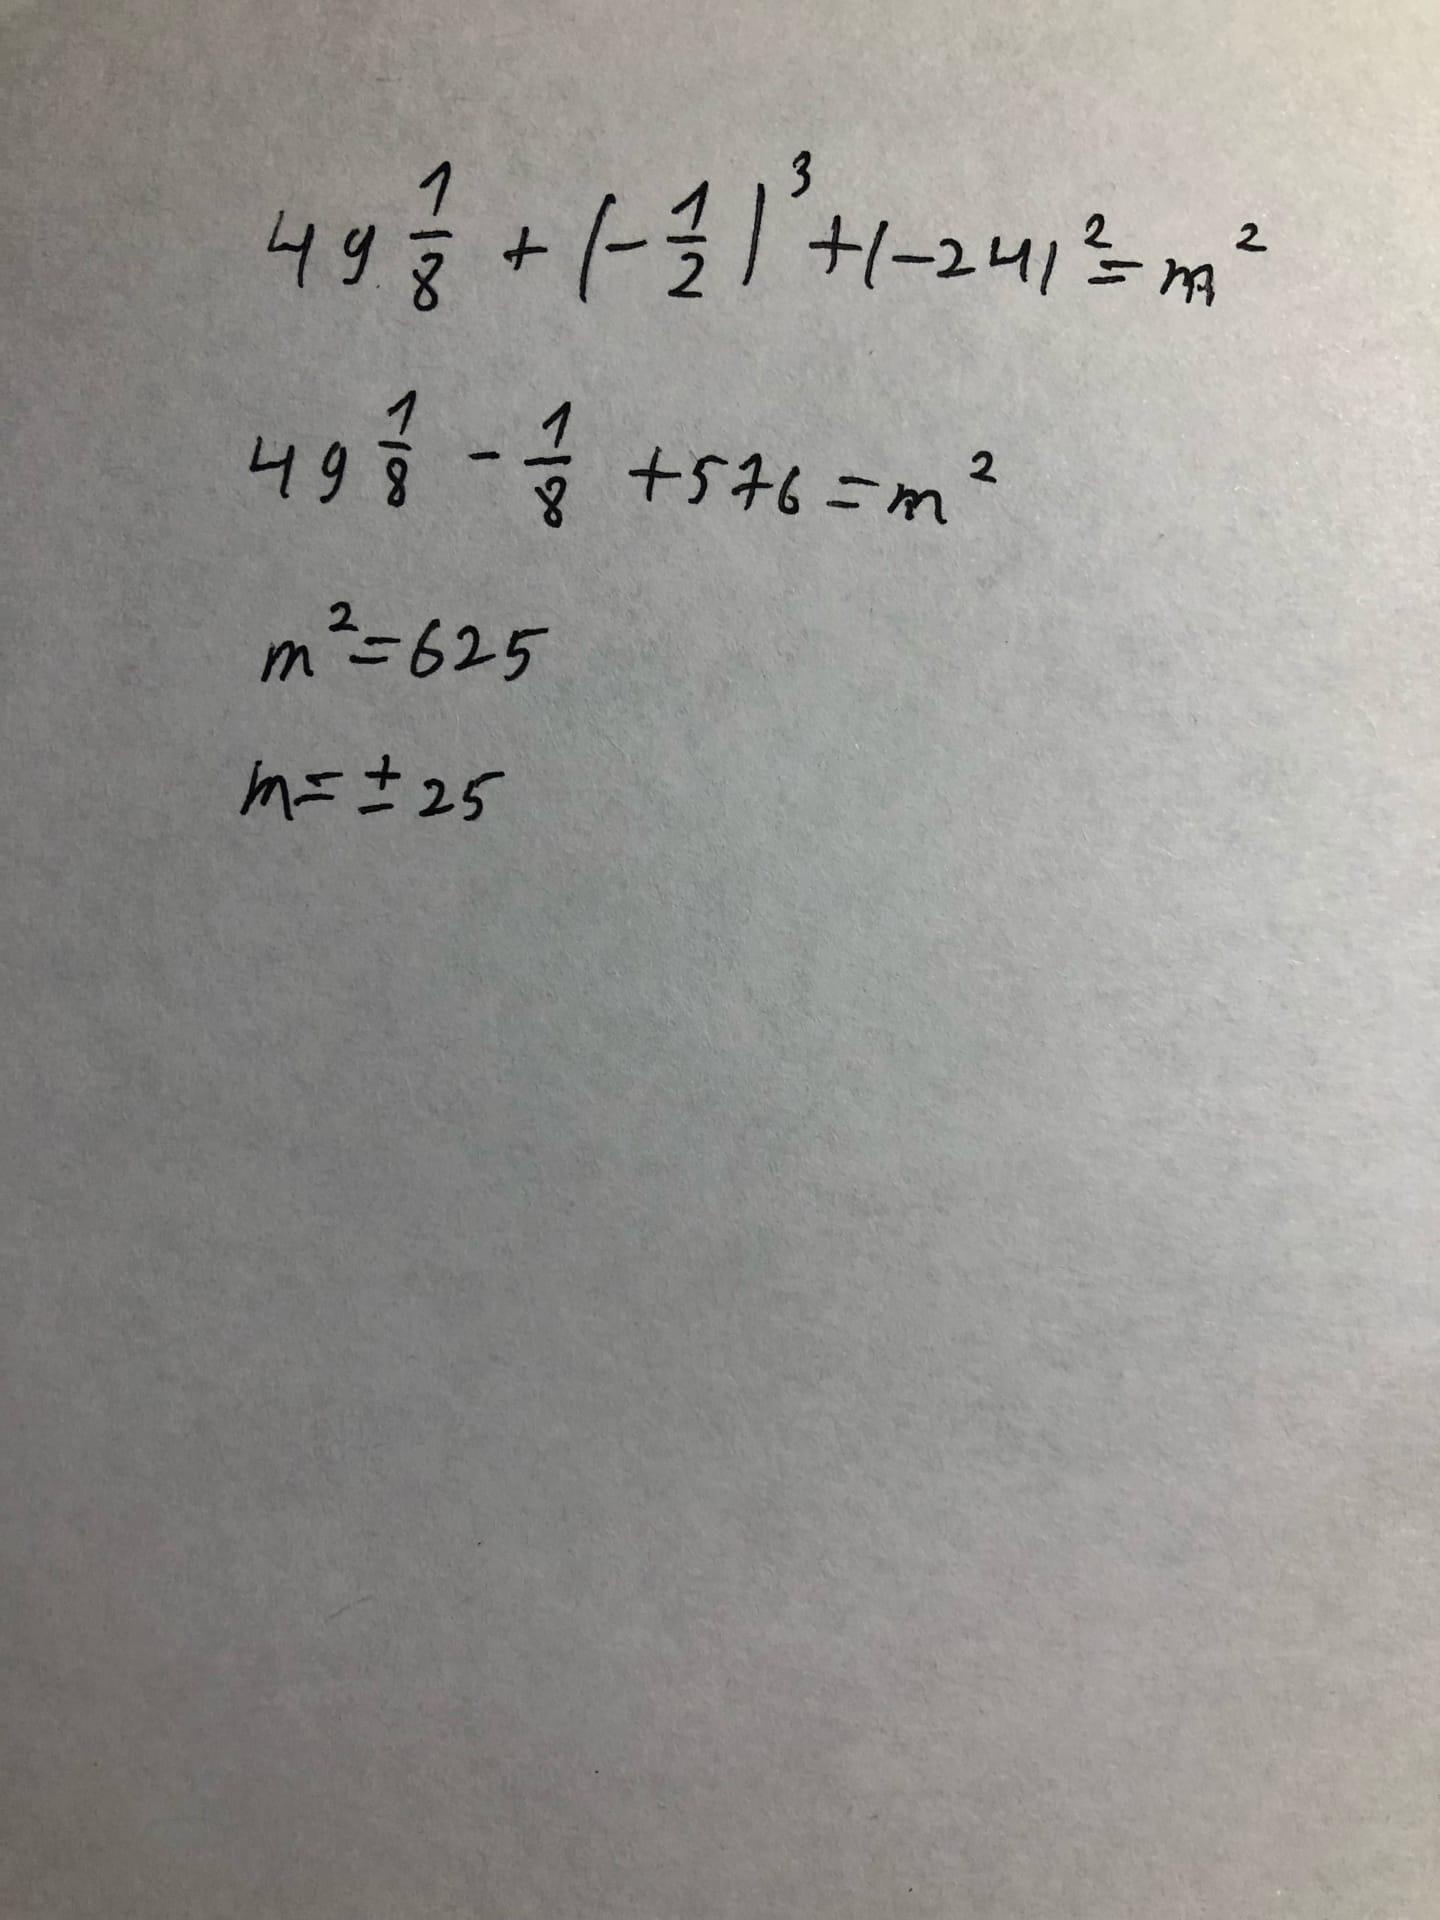 49 1/8 + (-1/2)³ + (-24)² = m²
49 1/8 - 1/8 + 576 = m²
m² = 625
m = ± 25